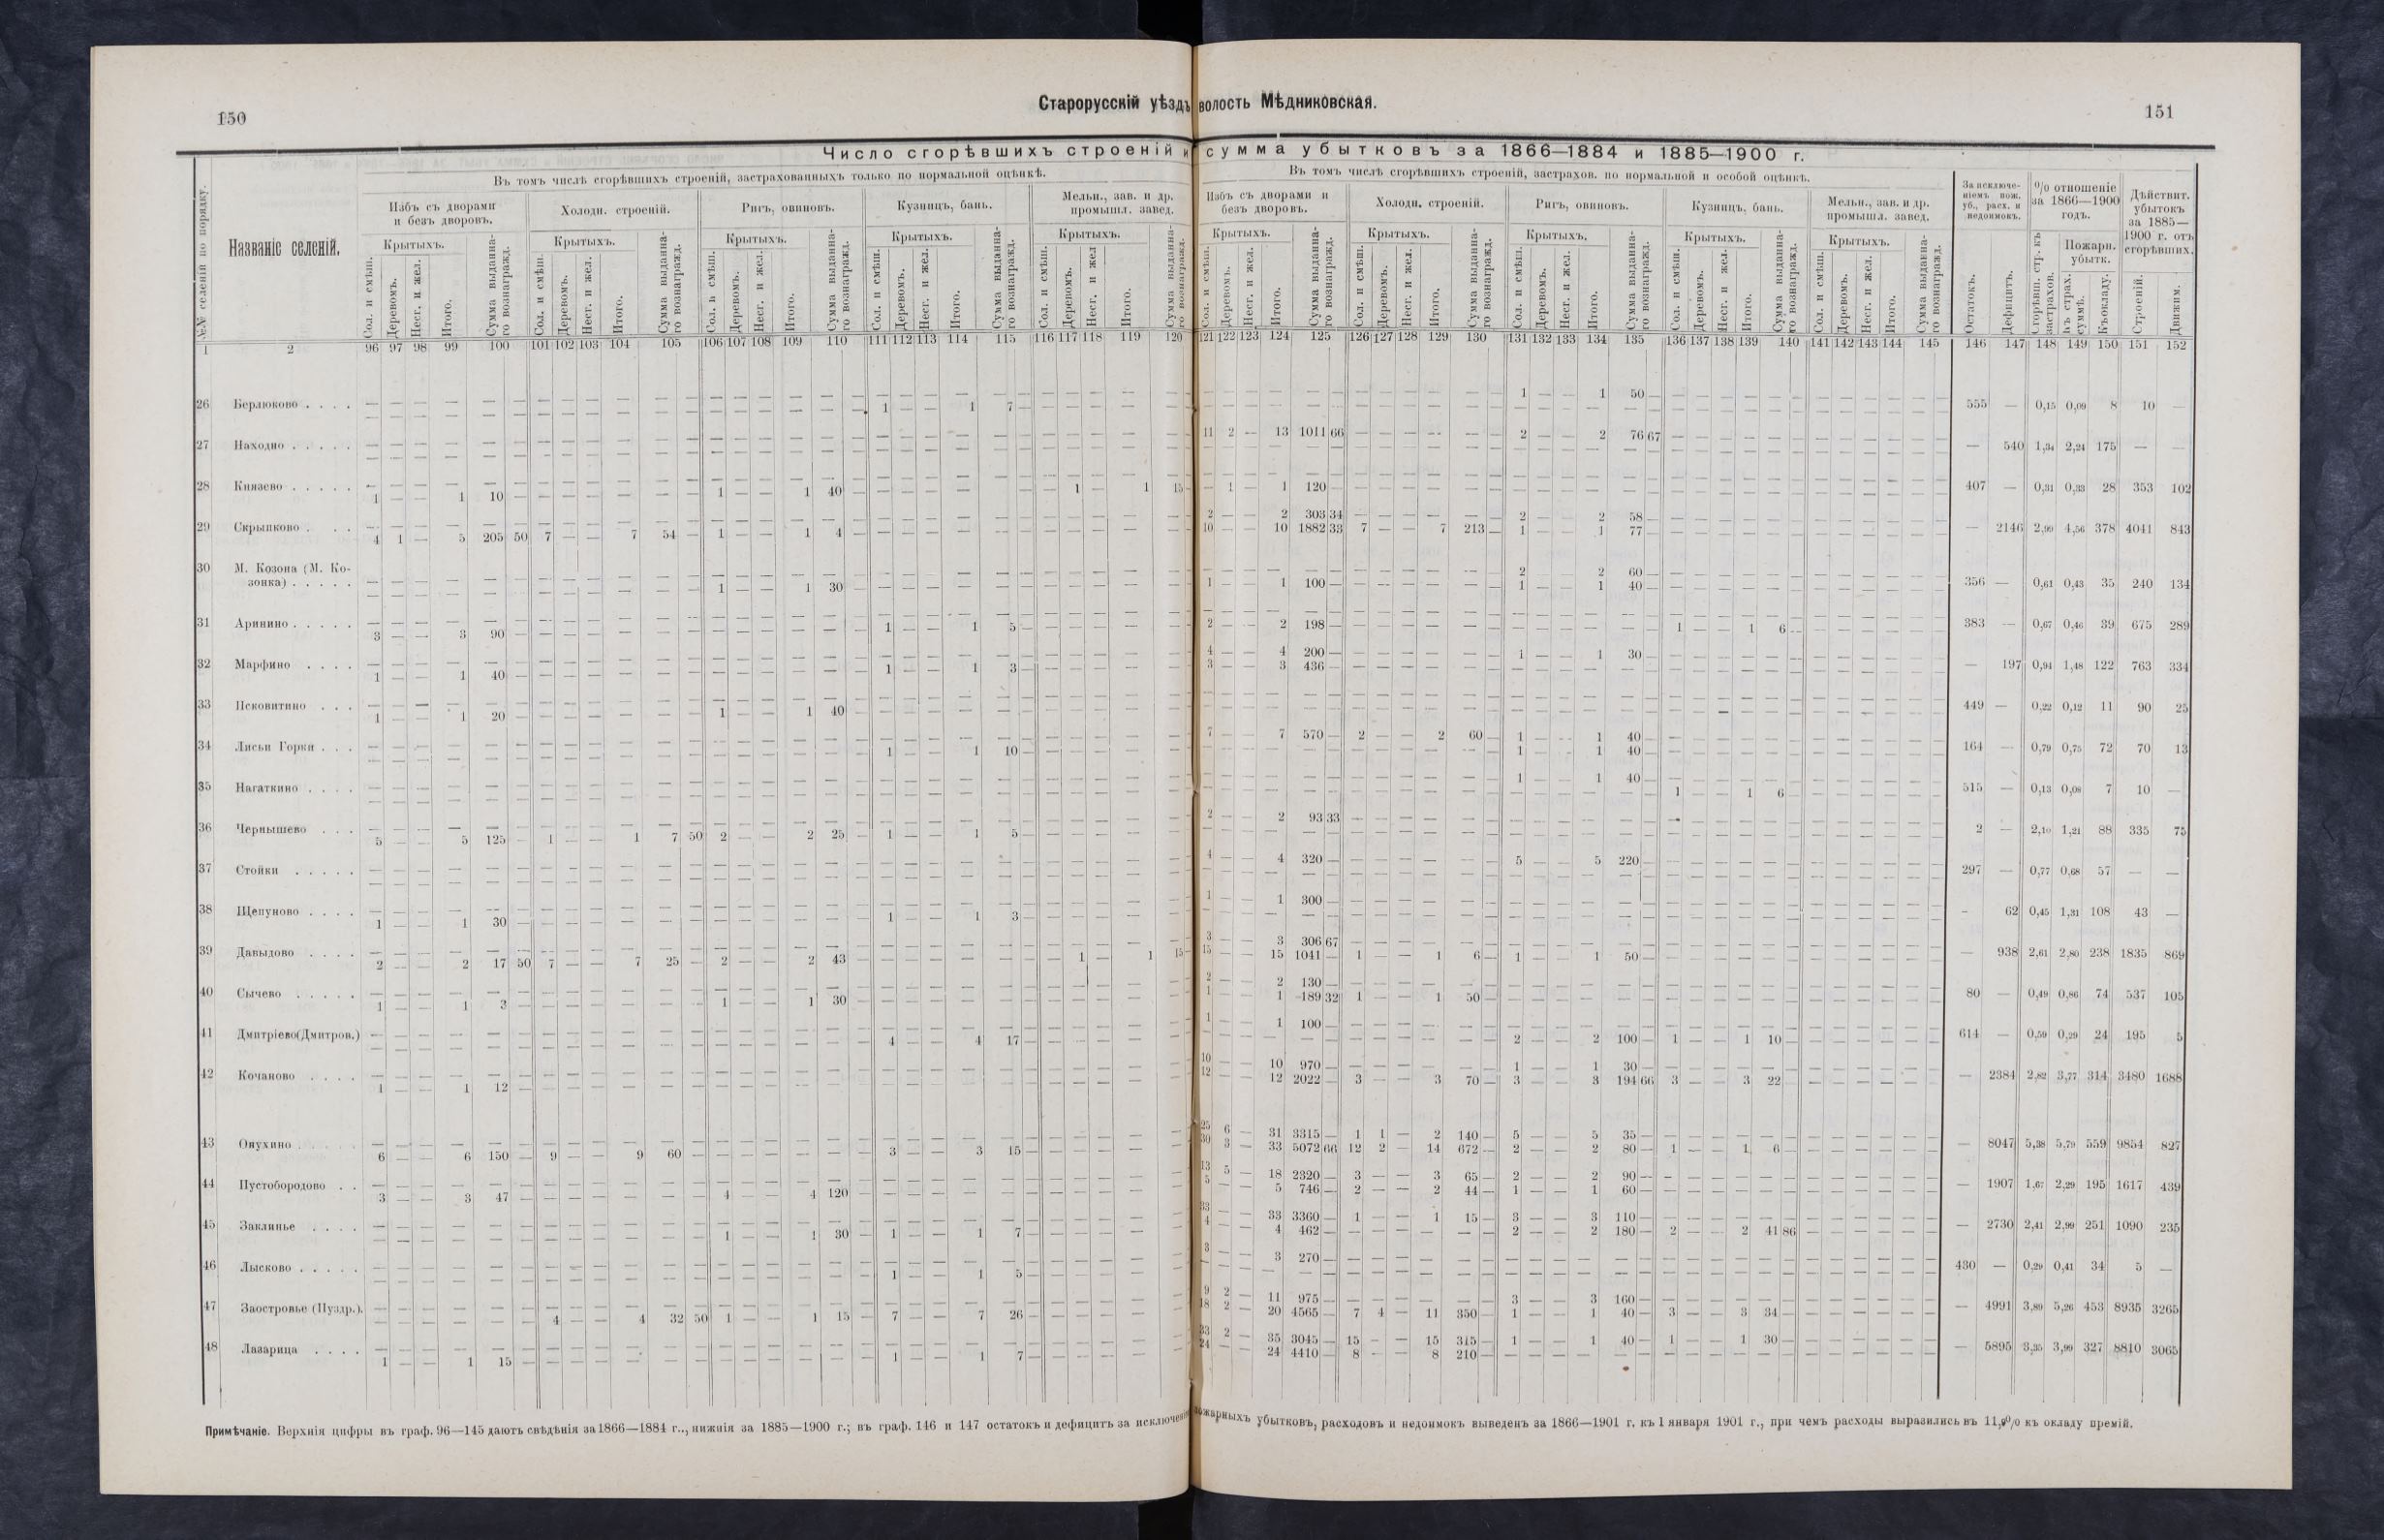 150
Старорусскій уѣздъ волость Мѣдниковская.
151
Число сгорѣвшихъ строеній и сумма убытковъ за 1866—1884 и 1885—1900 г.
№№ селеній по порядку.
Названіе селеній.
Въ томъ числѣ сгорѣвшихъ строеній, застрахованныхъ только по нормальной оцѣнкѣ.
Избъ съ дворами и безъ дворовъ.
Холодн. строеній.
Ригъ, овиновъ.
Кузницъ, бань.
Мельн., зав. и др. промышл. завед.
Въ томъ числѣ сгорѣвшихъ строеній, застрахов. по нормальной и особой оцѣнкѣ.
Избъ съ дворами и безъ дворовъ.
Холодн. строеній.
Ригъ, овиновъ.
Кузницъ, бань.
Мельн., зав. и др. промышл. завед.
За исключеніемъ пож. уб., расх. и недоимокъ.
Остатокъ.
Дефицитъ.
% отношеніе за 1866—1900 годъ.
Сгорѣвш. стр. къ застрахов.
Пожарн. убытк.
Къ страх. суммѣ.
Къ окладу.
Дѣйствит. убытокъ за 1885—1900 г. отъ сгорѣвших.
Строеній.
Движим.
Крытыхъ.
Сол. и смѣш.
Деревомъ.
Несг. и жел.
Итого.
Сумма выданнаго вознагражд.
1 2 96 97 98 99 100 101 102 103 104 105 106 107 108 109 110 111 112 113 114 115 116 117 118 119 120 121 122 123 124 125 126 127 128 129 130 131 132 133 134 135 136 137 138 139 140 141 142 143 144 145 146 147 148 149 150 151 152
1 — — 1 50
26 Берлюково . . . . 555 — 0,15 0,09 8 10 —
1 — — 1 7
11 2 — 13 1011 66 2 — — 2 76 67
27 Находно . . . . . — 540 1,34 2,24 175 — —
28 Князево . . . . . 407 — 0,31 0,33 28 353 102
1 — — 1 10 — 1 — — 1 40 — 1 — 1 15 — 1 — 1 120
2 — — 2 303 34 2 — — 2 58
29 Скрыпково . . . — 2146 2,99 4,56 378 4041 843
4 1 — 5 205 50 7 — — 7 54 — 1 — — 1 4 — 10 — — 10 1882 33 7 — — 7 213 — 1 — — 1 77
30 М. Козона (М. Козонка) . . . . . 2 — — 2 60
356 — 0,61 0,43 35 240 134
1 — — 1 30 — 1 — — 1 100 — 1 — — 1 40
31 Аринино . . . . . 383 — 0,67 0,46 39 675 289
3 — — 3 90 — 1 — — 1 5 — 2 — — 2 198 — 1 — — 1 6
4 — — 4 200 — 1 — — 1 30
32 Марфино . . . . — 197 0,94 1,48 122 763 334
1 — — 1 40 — 1 — — 1 3 — 3 — — 3 436
33 Псковитино . . . 449 — 0,22 0,12 11 90 25
1 — — 1 20 — 1 — — 1 40
7 — — 7 570 — 2 — — 2 60 — 1 — — 1 40
34 Лисьи Горки . . . 164 — 0,79 0,75 72 70 13
1 — — 1 10 — 1 — — 1 40
1 — — 1 40
35 Нагаткино . . . . 515 — 0,13 0,08 7 10 —
1 — — 1 6
2 — — 2 93 33
36 Чернышево . . . 2 — 2,10 1,21 88 335 75
5 — — 5 125 — 1 — — 1 7 50 2 — — 2 25 — 1 — — 1 5
4 — — 4 320 — 5 — — 5 220
37 Стойки . . . . . 297 — 0,77 0,68 57 — —
1 — — 1 300
38 Щепуново . . . . — 62 0,45 1,31 108 43 —
1 — — 1 30 — 1 — — 1 3
3 — — 3 306 67
39 Давыдово . . . . — 938 2,61 2,80 238 1835 869
2 — — 2 17 50 7 — — 7 25 — 2 — — 2 43 — 1 — 1 15 — 15 — — 15 1041 — 1 — — 1 6 — 1 — — 1 50
2 — — 2 130
40 Сычево . . . . . 80 — 0,49 0,86 74 537 105
1 — — 1 3 — 1 — — 1 30 — 1 — — 1 189 32 1 — — 1 50
1 — — 1 100
41 Дмитріево(Дмитров.) 614 — 0,59 0,29 24 195 5
4 — — 4 17 — 2 — — 2 100 — 1 — — 1 10
10 — — 10 970 — 1 — — 1 30
42 Кочаново . . . . — 2384 2,82 3,77 314 3480 1688
1 — — 1 12 — 12 — — 12 2022 — 3 — — 3 70 — 3 — — 3 194 66 3 — — 3 22
25 6 — 31 3315 — 1 1 — 2 140 — 5 — — 5 35
43 Онухино . . . . . — 8047 5,38 5,79 559 9854 827
6 — — 6 150 — 9 — — 9 60 — 3 — — 3 15 — 30 3 — 33 5072 66 12 2 — 14 672 — 2 — — 2 80 — 1 — — 1 6
13 5 — 18 2320 — 3 — — 3 65 — 2 — — 2 90
44 Пустобородово . . — 1907 1,67 2,29 195 1617 439
3 — — 3 47 — 4 — — 4 120 — 5 — — 5 746 — 2 — — 2 44 — 1 — — 1 60
33 — — 33 3360 — 1 — — 1 15 — 3 — — 3 110
45 Заклинье . . . . — 2730 2,41 2,99 251 1090 235
1 — — 1 30 — 1 — — 1 7 — 4 — — 4 462 — 2 — — 2 180 — 2 — — 2 41 86
3 — — 3 270
46 Лысково . . . . . 430 — 0,29 0,41 34 5 —
1 — — 1 5
9 2 — 11 975 — 3 — — 3 160
47 Заостровье (Пуздр.). — 4991 3,89 5,26 453 8935 3265
4 — — 4 32 50 1 — — 1 15 — 7 — — 7 26 — 18 2 — 20 4565 — 7 4 — 11 350 — 1 — — 1 40 — 3 — — 3 34
33 2 — 35 3045 — 15 — — 15 315 — 1 — — 1 40 — 1 — — 1 30
48 Лазарица . . . . — 5895 3,35 3,99 327 8810 3065
1 — — 1 15 — 1 — — 1 7 — 24 — — 24 4410 — 8 — — 8 210
Примѣчаніе. Верхнія цифры въ граф. 96—145 даютъ свѣдѣнія за 1866—1884 г., нижнія за 1885—1900 г.; въ граф. 146 и 147 остатокъ и дефицитъ за исключеніемъ пожарныхъ убытковъ, расходовъ и недоимокъ выведенъ за 1866—1901 г. къ 1 января 1901 г., при чемъ расходы выразились въ % къ окладу премій.